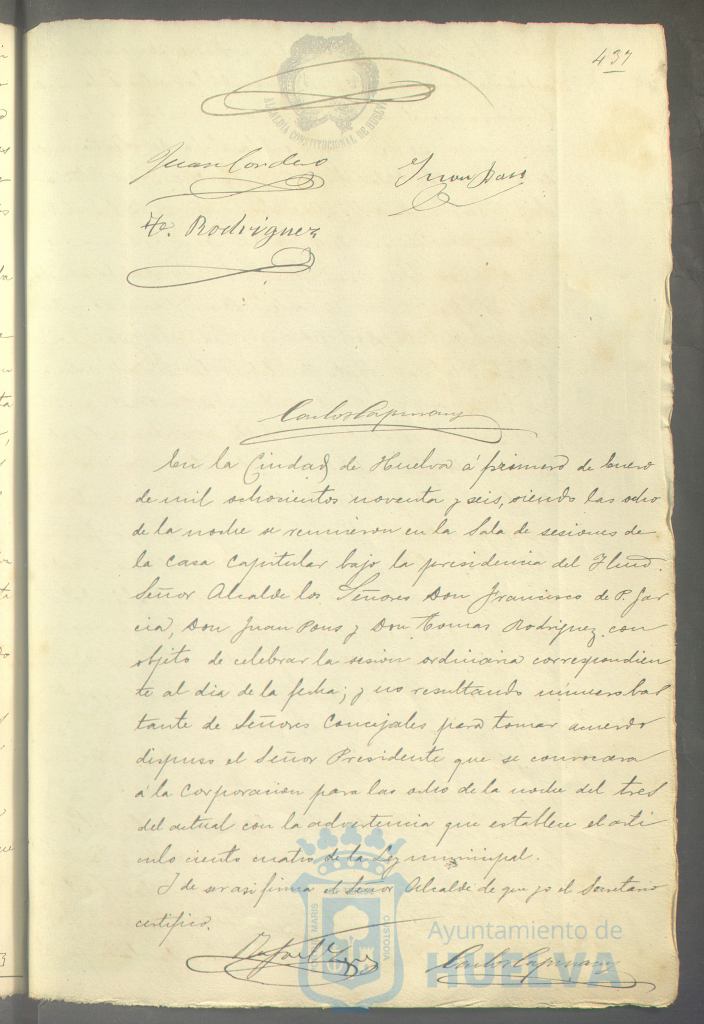 437
ALCALDIA CONSTITUCIONAL DE HUELVA
Juan Cordero
Juan
F. Rodriguez
Carlos
En la Ciudad de Huelva á primero de Enero
de mil ochocientos noventa y seis, siendo las ocho
de la noche se reunieron en la Sala de sesiones de
la casa capitular bajo la presidencia del Iltmo.
Señor Alcalde los Señores Don Francisco de P. Gar
cia, Don Juan Pons y Don Tomas Rodriguez, con
objeto de celebrar la sesion ordinaria correspondien
te al dia de la fecha; y no resultando número bas
tante de Señores Concejales para tomar acuerdo
dispuso el Señor Presidente que se convocara
á la Corporacion para las ocho de la noche del tres
del actual con la advertencia que establece el arti
culo ciento cuatro de la Ley municipal.
Y de ser asi firma el Señor Alcalde de que yo el Secretario
certifico.
Rafael
Carlos
MARIS
CUSTODIA
Ayuntamiento de
HUELVA